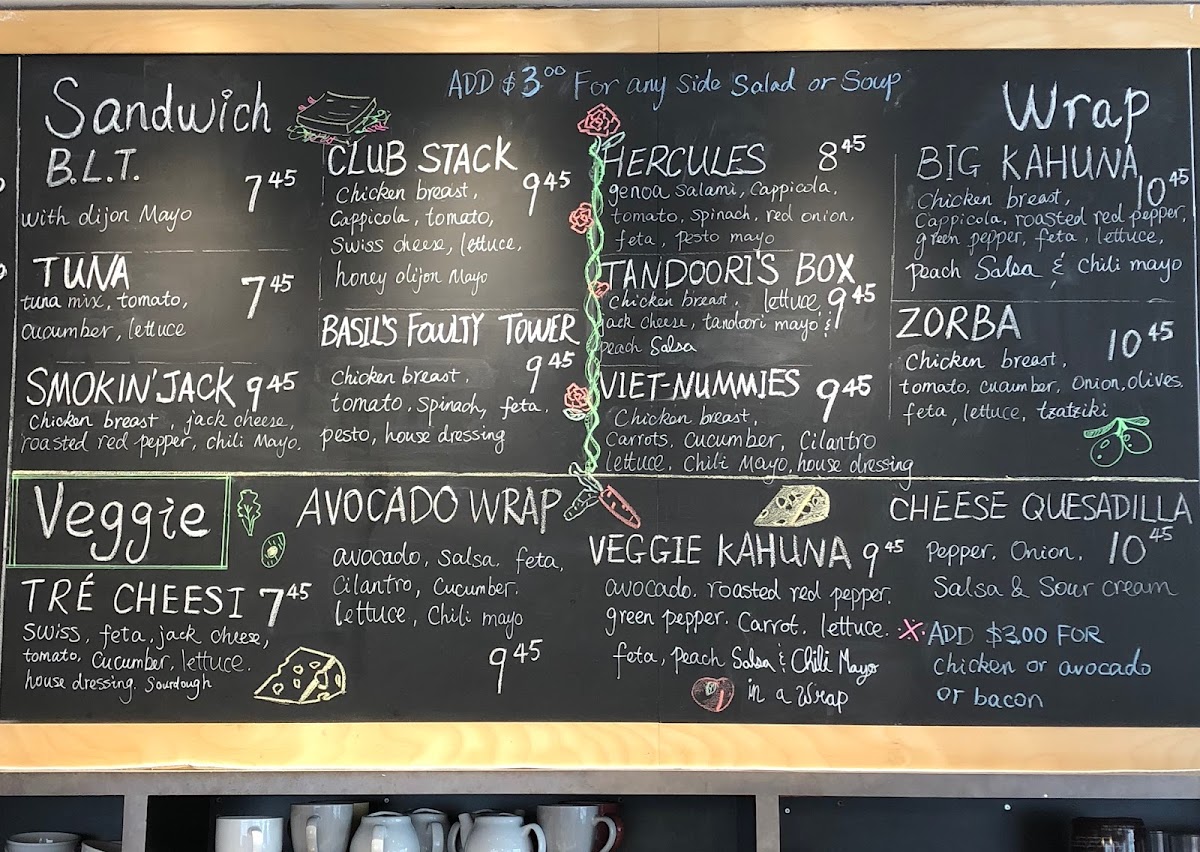 ADD $3.00 For any side Salad or Soup
Sandwich
B.L.T.
7.45
with dijon Mayo
TUNA
7.45
tuna mix, tomato,
cucumber, lettuce
SMOKIN' JACK 9.45
Chicken breast, jack cheese,
roasted red pepper, chili Mayo.
CLUB STACK
9.45
Chicken breast,
Cappicola, tomato,
Swiss cheese, lettuce,
honey dijon Mayo
BASIL'S FOULTY TOWER
9.45
Chicken breast,
tomato, spinach, feta,
pesto, house dressing
HERCULES 8.45
genoa salami, cappicola,
tomato, spinach, red onion,
feta, pesto mayo
TANDOORI'S BOX
9.45
Chicken breast, lettuce,
jack cheese, tandoori mayo &
peach Salsa
VIET-NUMMIES 9.45
Chicken breast,
Carrots, Cucumber, Cilantro
lettuce, Chili Mayo, house dressing
Wrap
BIG KAHUNA
10.45
Chicken breast,
Cappicola, roasted red pepper,
green pepper, feta, lettuce,
peach Salsa & Chili mayo
ZORBA
10.45
Chicken breast,
tomato, cucumber, Onion, olives.
feta, lettuce, tzatziki
Veggie
TRÉ CHEESI 7.45
Swiss, feta, jack cheese,
tomato, cucumber, lettuce.
house dressing. Sourdough
AVOCADO WRAP
avocado, salsa, feta,
Cilantro, Cucumber.
lettuce, Chili mayo
9.45
VEGGIE KAHUNA 9.45
avocado. roasted red pepper.
green pepper. Carrot. lettuce.
feta, peach Salsa & Chili Mayo
in a Wrap
CHEESE QUESADILLA
10.45
Pepper. Onion.
Salsa & Sour cream
X ADD $3.00 FOR
chicken or avocado
or bacon